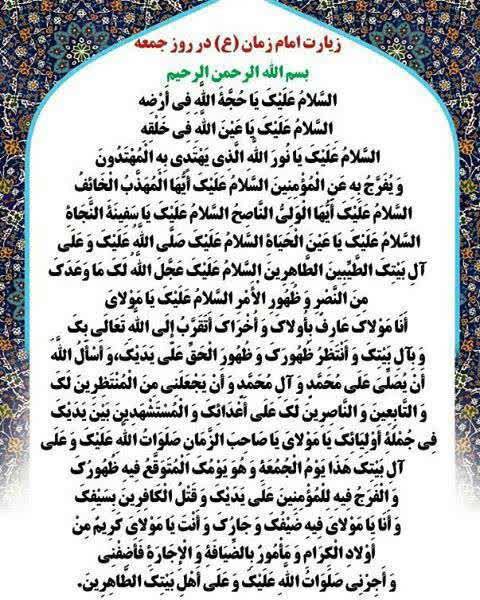 زیارت امام زمان (ع) در روز جمعه
بسم الله الرحمن الرحیم
السَّلامُ عَلَیْکَ یَا حُجَّةَ اللَّهِ فِی أَرْضِهِ
السَّلامُ عَلَیْکَ یَا عَیْنَ اللَّهِ فِی خَلْقِهِ
السَّلامُ عَلَیْکَ یَا نُورَ اللَّهِ الَّذِی یَهْتَدِی بِهِ الْمُهْتَدُونَ
وَ یُفَرَّجُ بِهِ عَنِ الْمُؤْمِنِینَ السَّلامُ عَلَیْکَ أَیُّهَا الْمُهَذَّبُ الْخَائِفُ
السَّلامُ عَلَیْکَ أَیُّهَا الْوَلِیُّ النَّاصِحُ السَّلامُ عَلَیْکَ یَا سَفِینَةَ النَّجَاةِ
السَّلامُ عَلَیْکَ یَا عَیْنَ الْحَیَاةِ السَّلامُ عَلَیْکَ صَلَّى اللَّهُ عَلَیْکَ وَ عَلَى
آلِ بَیْتِکَ الطَّیِّبِینَ الطَّاهِرِینَ السَّلامُ عَلَیْکَ عَجَّلَ اللَّهُ لَکَ مَا وَعَدَکَ
مِنَ النَّصْرِ وَ ظُهُورِ الْأَمْرِ السَّلامُ عَلَیْکَ یَا مَوْلایَ
أَنَا مَوْلاکَ عَارِفٌ بِأُولاکَ وَ أُخْرَاکَ أَتَقَرَّبُ إِلَى اللَّهِ تَعَالَى بِکَ
وَ بِآلِ بَیْتِکَ وَ أَنْتَظِرُ ظُهُورَکَ وَ ظُهُورَ الْحَقِّ عَلَى یَدَیْکَ،وَ أَسْأَلُ اللَّهَ
أَنْ یُصَلِّیَ عَلَى مُحَمَّدٍ وَ آلِ مُحَمَّدٍ وَ أَنْ یَجْعَلَنِی مِنَ الْمُنْتَظِرِینَ لَکَ
وَ التَّابِعِینَ وَ النَّاصِرِینَ لَکَ عَلَى أَعْدَائِکَ وَ الْمُسْتَشْهَدِینَ بَیْنَ یَدَیْکَ
فِی جُمْلَةِ أَوْلِیَائِکَ یَا مَوْلایَ یَا صَاحِبَ الزَّمَانِ صَلَوَاتُ اللَّهِ عَلَیْکَ وَ عَلَى
آلِ بَیْتِکَ هَذَا یَوْمُ الْجُمُعَةِ وَ هُوَ یَوْمُکَ الْمُتَوَقَّعُ فِیهِ ظُهُورُکَ
وَ الْفَرَجُ فِیهِ لِلْمُؤْمِنِینَ عَلَى یَدَیْکَ وَ قَتْلُ الْکَافِرِینَ بِسَیْفِکَ
وَ أَنَا یَا مَوْلایَ فِیهِ ضَیْفُکَ وَ جَارُکَ وَ أَنْتَ یَا مَوْلایَ کَرِیمٌ مِنْ
أَوْلادِ الْکِرَامِ وَ مَأْمُورٌ بِالضِّیَافَةِ وَ الْإِجَارَةِ فَأَضِفْنِی
وَ أَجِرْنِی صَلَوَاتُ اللَّهِ عَلَیْکَ وَ عَلَى أَهْلِ بَیْتِکَ الطَّاهِرِینَ.